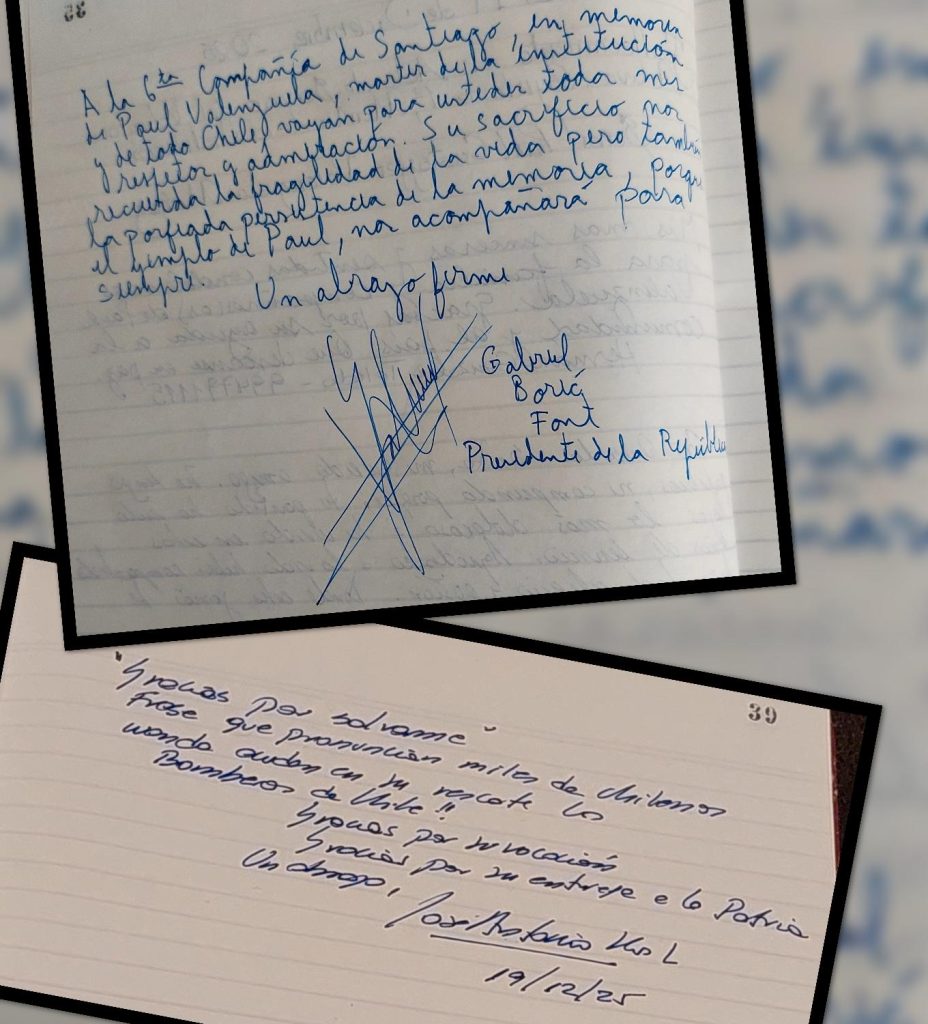 A la 6ta Compañía de Santiago, en memoria
de Paul Valenzuela, martir de la institución
y de todo Chile, vayan para ustedes todos mis
respetos y admiración. Su sacrificio nos
recuerda la fragilidad de la vida pero también
la porfiada persistencia de la memoria, porque
el ejemplo de Paul, nos acompañará para
siempre.
Un abrazo firme
Gabriel
Boric
Font
Presidente de la República
39
"Gracias por salvarme"
Frase que pronuncian miles de chilenos
cuando acuden en su rescate los
Bomberos de Chile!!
Gracias por su vocación
Gracias por su entrega a la Patria
Un abrazo,
José Antonio Kast
19/12/25